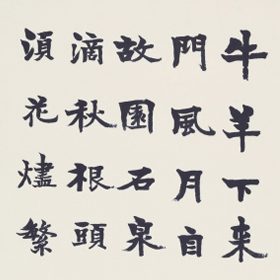 牛羊下来
門風月自
故園石泉
滴秋根頭
須花燼繁